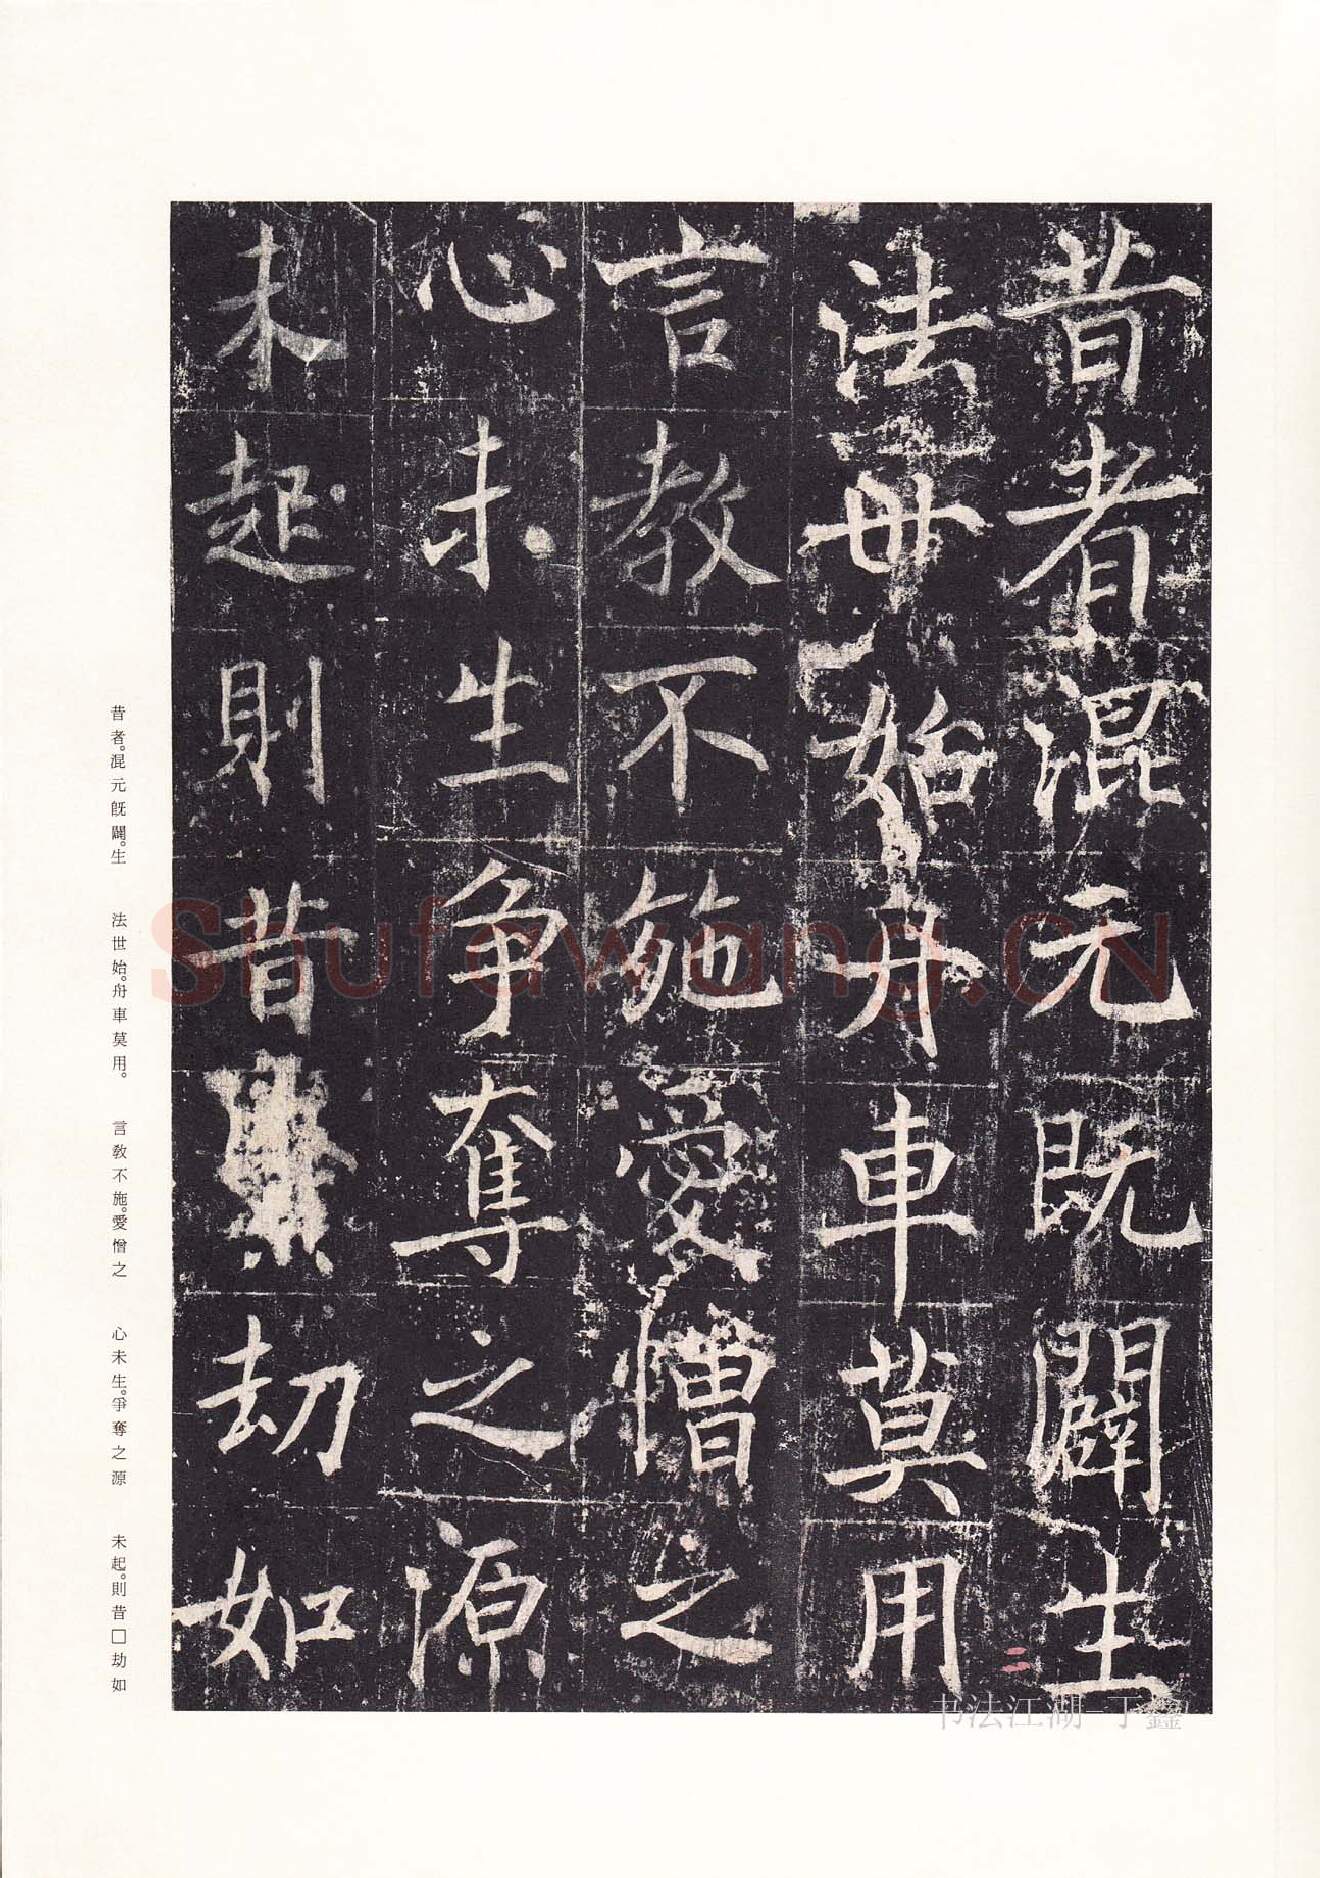 昔者混元既闢生
法世始舟車莫用
言教不施愛憎之
心未生爭奪之源
未起則昔劫如
昔者。混元既闢。生
法世始。舟車莫用。
言教不施。愛憎之
心未生。爭奪之源
未起。則昔□劫如
二
Shufawang.cn
书法江湖-丁鑫